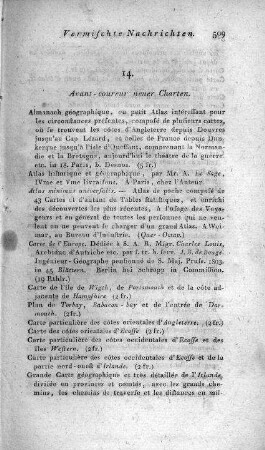 Vermischte Nachrichten. 509
14.
Avant-coureur neuer Charten.
Almanach géographique, ou petit Atlas intéressant pour
les circonstances présentes, composé de plusieurs cartes,
où se trouvent les côtes d'Angleterre depuis Douvres
jusqu'au Cap Lézard, et celles de France depuis Dun-
kerque jusqu'à l'isle d'Ouessant, concernant la Norman-
die et la Bretagne, aujourd'hui le théâtre de la guerre.
etc. in 18. Paris, b. Desnos. (5 fr.)
Atlas historique et géographique, par Mr. A. Le Sage,
IVme et Vme livraisons. A Paris, chez l'Auteur.
Atlas minimus universalis. — Atlas de poche composé de
43 Cartes et d'autant de Tables statistiques, avec des
découvertes les plus récentes, à l'usage des Voya-
geurs et en général de toutes les personnes qui ne peuvent
pas avoir toujours sous les yeux un grand Atlas. A Wei-
mar, au Bureau d'Industrie. (Quer-Octav.)
Carte de l'Europe. Dédiée à S. A. R. Msgr. Charles Louis,
Archiduc d'Autriche etc. par
Ingénieur-Géographe présenté à S. Maj. Pruss. 1803.
in 45 Blättern. Berlin bei Schropp in Commission.
(19 Rthlr.)
Carte de l'isle de Wigth, de Portsmouth et de la côte ad-
jacente de Hampshire (2 fr.)
Plan de Torbay, Babacon-bay et de l'entrée de Dar-
mouth. (2 fr.)
Carte particulière des côtes orientales d'Angleterre. (2 fr.)
Carte des côtes orientales d'Ecosse (2 fr.)
Carte particulière des côtes occidentales d'Ecosse et des
îles Western. (2 fr.)
Carte particulière des côtes occidentales d'Ecosse et de la
partie nord-ouest d'Irlande. (2 fr.)
Grande Carte géographique et très détaillée de l'Irlande,
divisée en provinces et comtés, avec les grands che-
mins, les chemins de traverse et les distances en mil-